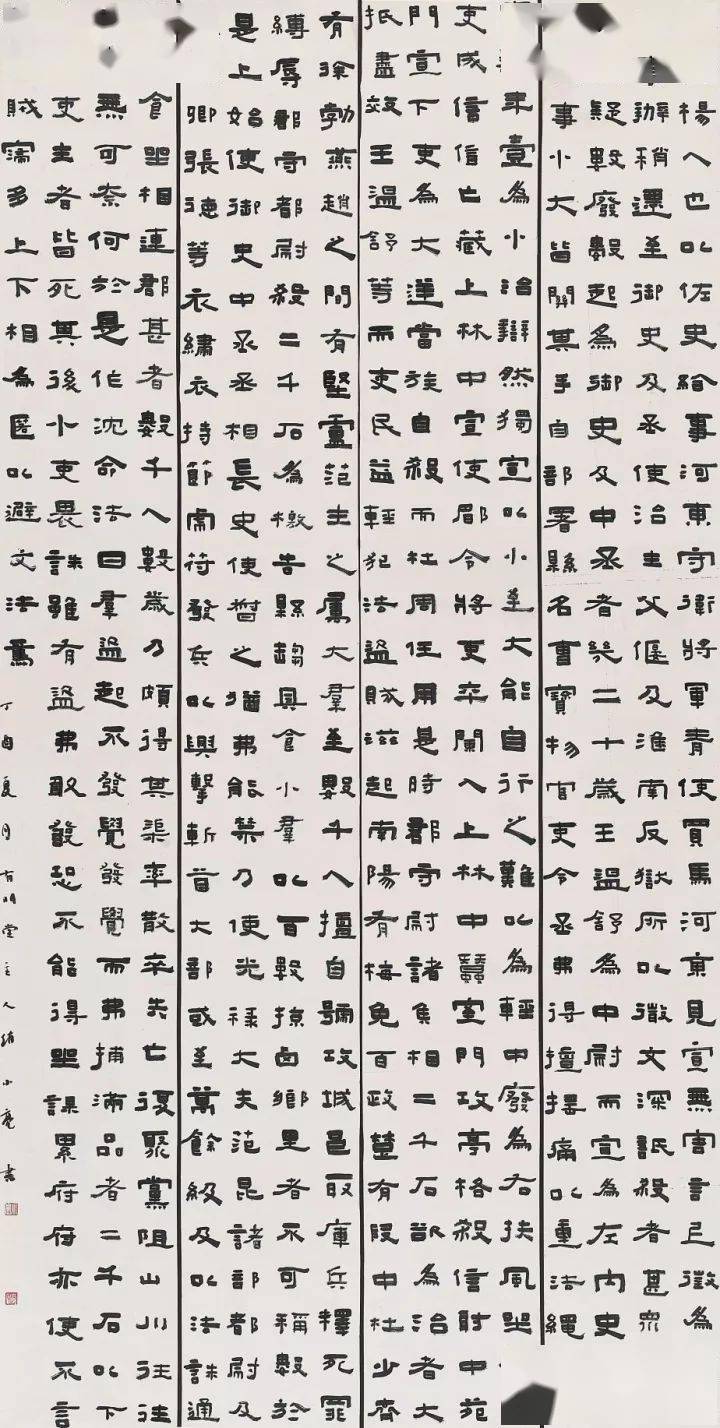 楊人也以佐史給事河東守衛將軍青使買馬河東見宣無害言上徵為
辦稍遷至御史及丞使治主父偃及淮南反獄所以微文深詆殺者甚眾
疑數廢數起為御史及中丞者幾二十歲王溫舒為中尉而宣為左內史
事小大皆關其手自部署縣名曹寶物官吏令丞弗得擅搖痛以重法繩
年壹為小治辯然獨宣以小至大能自行之難以為輕中廢為右扶風坐
吏成信信亡藏上林中宣使郿令將吏卒闌入上林中蠶室門攻亭格殺信射中苑
門宣下吏為大逆當族自殺而杜周任用是時郡守尉諸侯相二千石欲為治者大
抵盡效王溫舒等而吏民益輕犯法盜賊滋起南陽有梅免百政楚有段中杜少齊
有徐勃燕趙之間有堅盧范主之屬大群至數千人擅自號攻城邑取庫兵釋死罪
縛辱郡守都尉殺二千石為檄告縣趨具食小群以百數掠鹵鄉里者不可稱數於
是上始使御史中丞丞相長史使督之猶弗能禁乃使光祿大夫范昆諸部都尉及
卿張德等衣繡衣持節虎符發兵以興擊斬首大部或至萬餘級及以法誅通
食坐相連郡甚者數千人數歲乃頗得其渠率散卒失亡復聚黨阻山川往往
無可奈何於是作沈命法曰群盜起不發覺發覺而弗捕滿品者二千石以下
吏主者皆死其後小吏畏誅雖有盜弗敢發恐不能得坐課累府府亦使不言
賊寖多上下相為匿以避文法焉
丁酉夏月有明堂主人小亮書